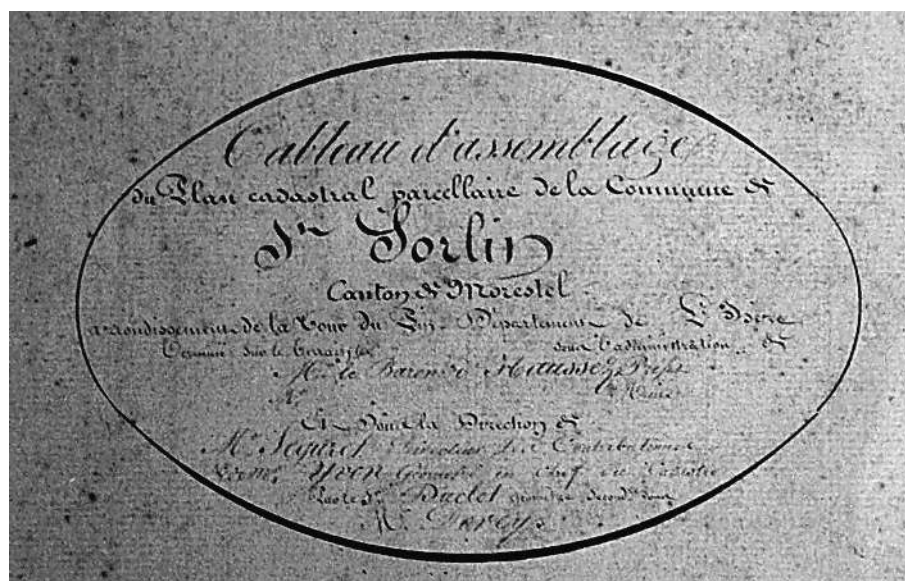 Tableau d'assemblage
du Plan cadastral parcellaire de la Commune de
St. Sorlin
Canton de Morestel
arrondissement de la Tour du Pin Département de L'Isère
Terminé sur le terrain sous l'administration de
Mr. le Baron d'Haussez Préfet
Mr. Maire
Et sous la Direction de
Mr. Seguret Directeur des Contributions
Yvon Géomètre en chef du Cadastre
Par le Sr. Duclot géomètre second
Mr.